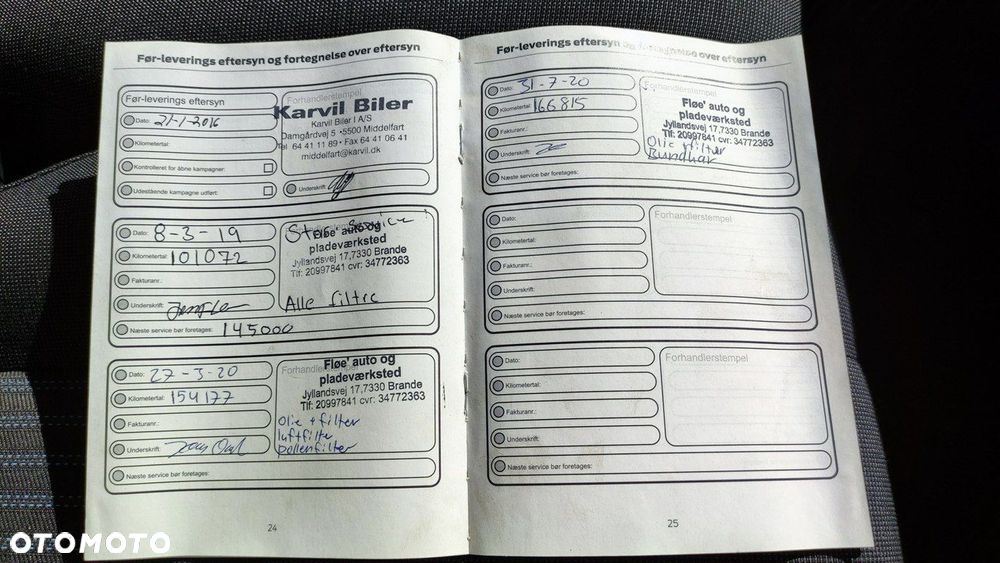 Før-leverings eftersyn og fortegnelse over eftersyn
Før-leverings eftersyn
Dato: 21-1-2016
Kilometertal:
Kontrolleret for åbne kampagner:
Udestående kampagne udført:
Forhandlerstempel
Karvil Biler
Karvil Biler I A/S
Damgårdvej 5 • 5500 Middelfart
Tel 64 41 11 89 • Fax 64 41 06 41
middelfart@karvil.dk
Underskrift:
Dato: 8-3-19
Kilometertal: 101072
Fakturanr.:
Underskrift:
Næste service bør foretages: 145000
Stor Service!
Fløe' auto og
pladeværksted
Jyllandsvej 17,7330 Brande
Tlf: 20997841 cvr: 34772363
Alle filtre
Dato: 27-3-20
Kilometertal: 154177
Fakturanr.:
Underskrift:
Næste service bør foretages:
Forhandlerstempel
Fløe' auto og
pladeværksted
Jyllandsvej 17,7330 Brande
Tlf: 20997841 cvr: 34772363
Olie + filter
luftfilter
pollenfilter
24
Før-leverings eftersyn og fortegnelse over eftersyn
Dato: 31-7-20
Kilometertal: 166815
Fakturanr.:
Underskrift:
Næste service bør foretages:
Forhandlerstempel
Fløe' auto og
pladeværksted
Jyllandsvej 17,7330 Brande
Tlf: 20997841 cvr: 34772363
Olie filter
Bundkar
Dato:
Kilometertal:
Fakturanr.:
Underskrift:
Næste service bør foretages:
Forhandlerstempel
Dato:
Kilometertal:
Fakturanr.:
Underskrift:
Næste service bør foretages:
Forhandlerstempel
25
OTOMOTO